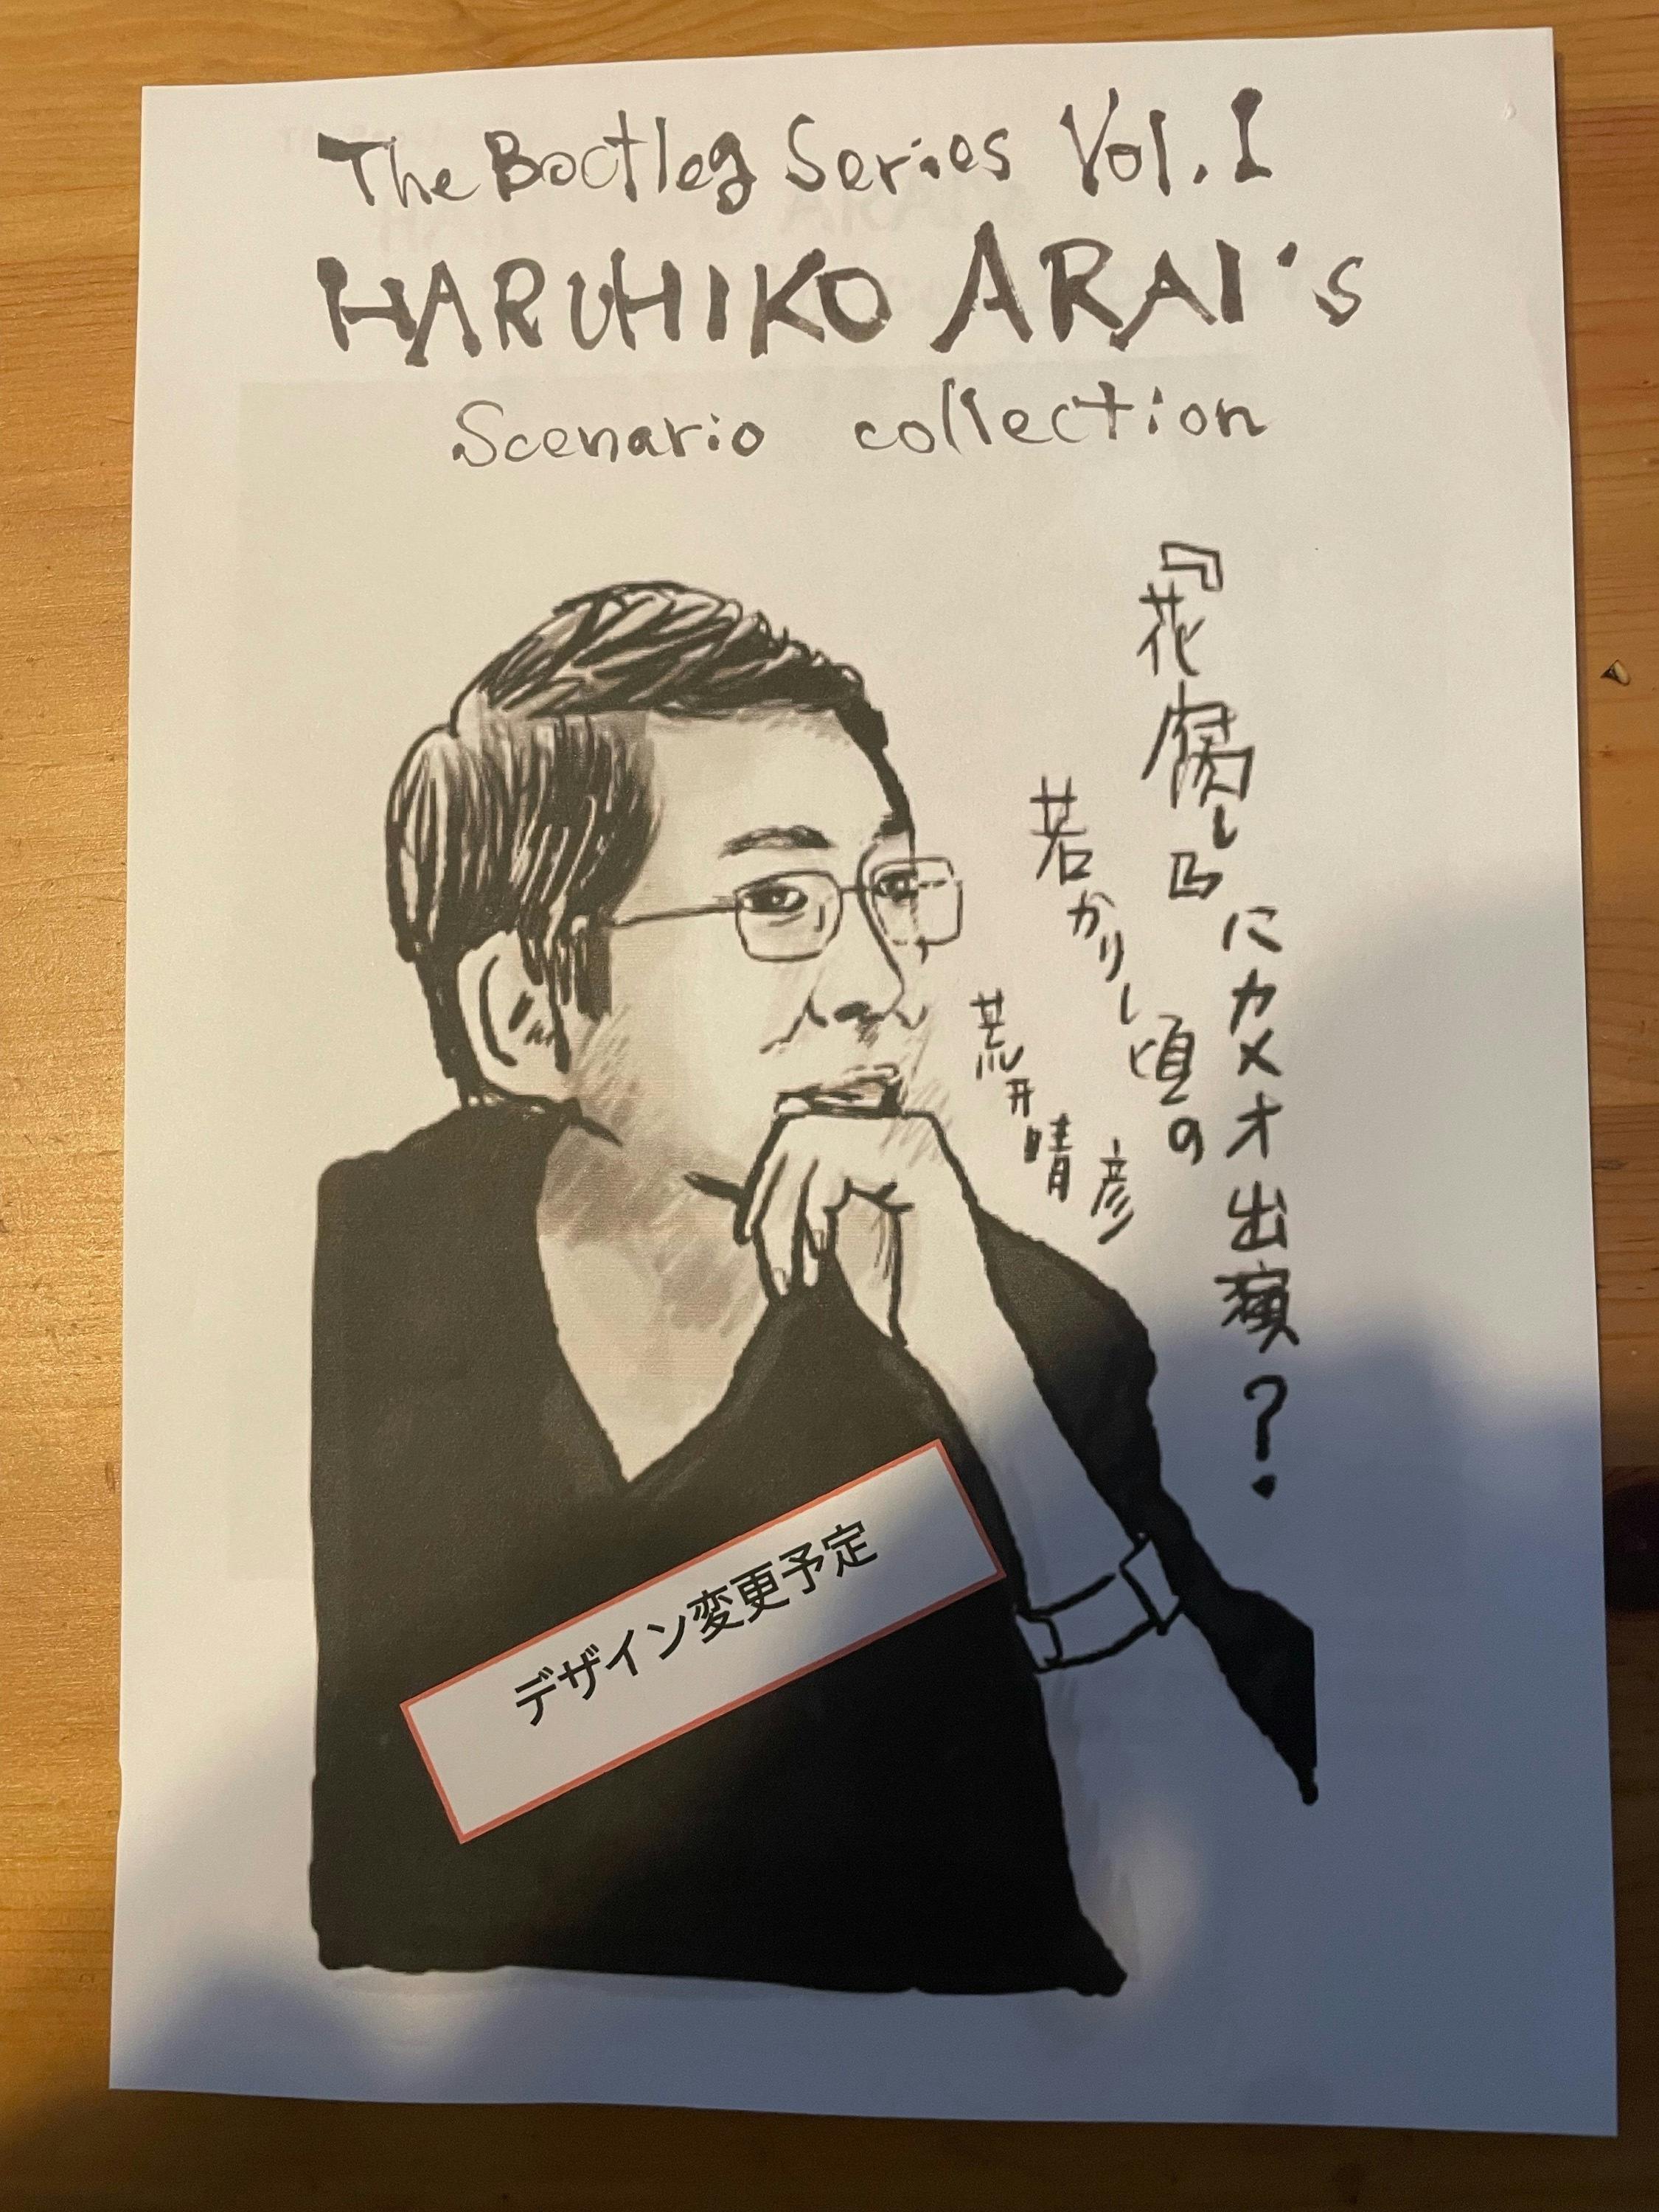 The Bootleg Series Vol.1
HARUHIKO ARAI's
Scenario collection
『花腐し』にカメオ出演？
若かりし頃の
荒井晴彦
デザイン変更予定